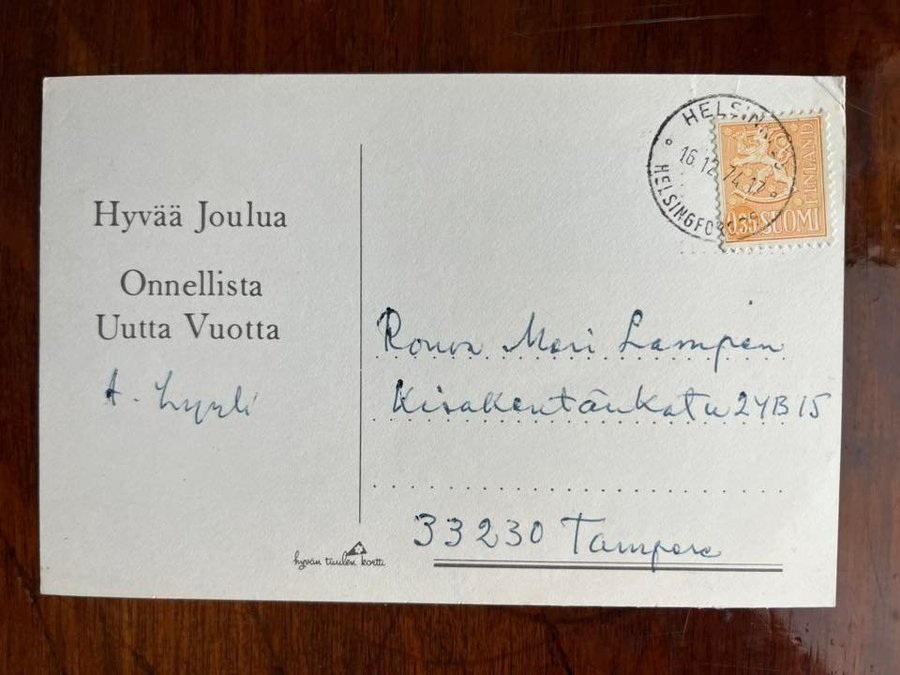 Hyvää Joulua
Onnellista
Uutta Vuotta
A.
HELSINKI
16.12.74.17
HELSINGFORS
0,35 SUOMI
FINLAND
Rouva Meri Lampén
Kisakentänkatu 24B15
33230 Tampere
hyvän tuulen kortti